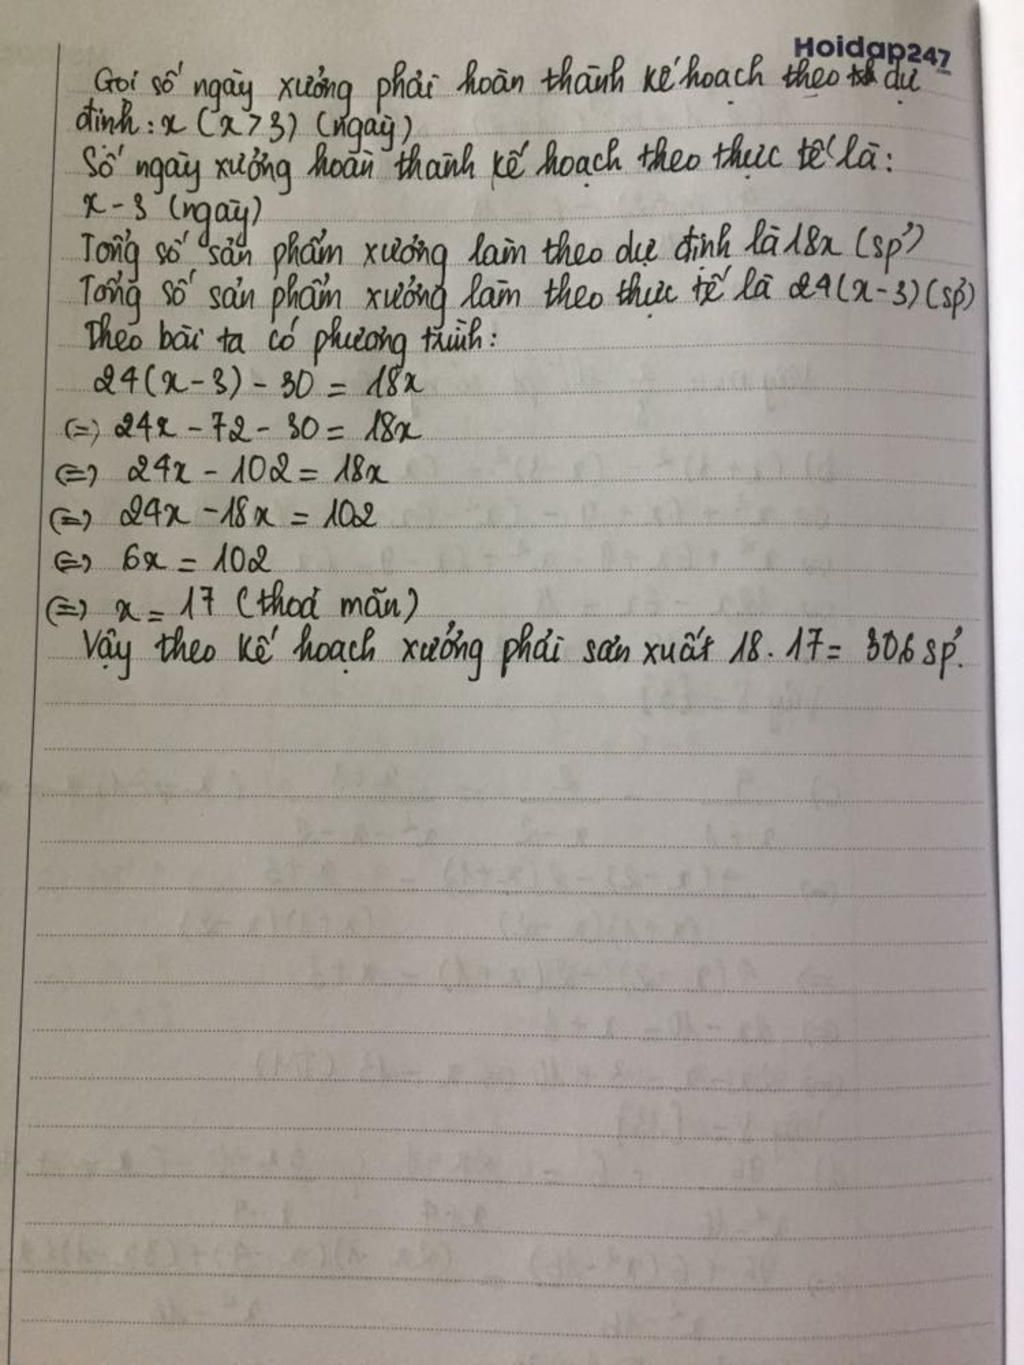 Hoidap247
Gọi số ngày xưởng phải hoàn thành kế hoạch theo dự
định: x (x > 3) (ngày)
Số ngày xưởng hoàn thành kế hoạch theo thực tế là:
x - 3 (ngày)
Tổng số sản phẩm xưởng làm theo dự định là 18x (sp')
Tổng số sản phẩm xưởng làm theo thực tế là 24(x-3) (sp')
Theo bài ta có phương trình:
24(x-3) - 30 = 18x
(=) 24x - 72 - 30 = 18x
(=) 24x - 102 = 18x
(=) 24x - 18x = 102
(=) 6x = 102
(=) x = 17 (thoả mãn)
Vậy theo kế hoạch xưởng phải sản xuất 18. 17 = 306 sp'.